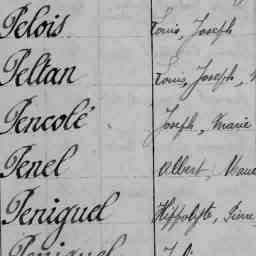 Pelois Louis, Joseph
Peltan Louis, Joseph,
Pencolé Joseph, Marie
Penel Albert, Marie
Peniguel Hippolyte, Pierre
Peniguel